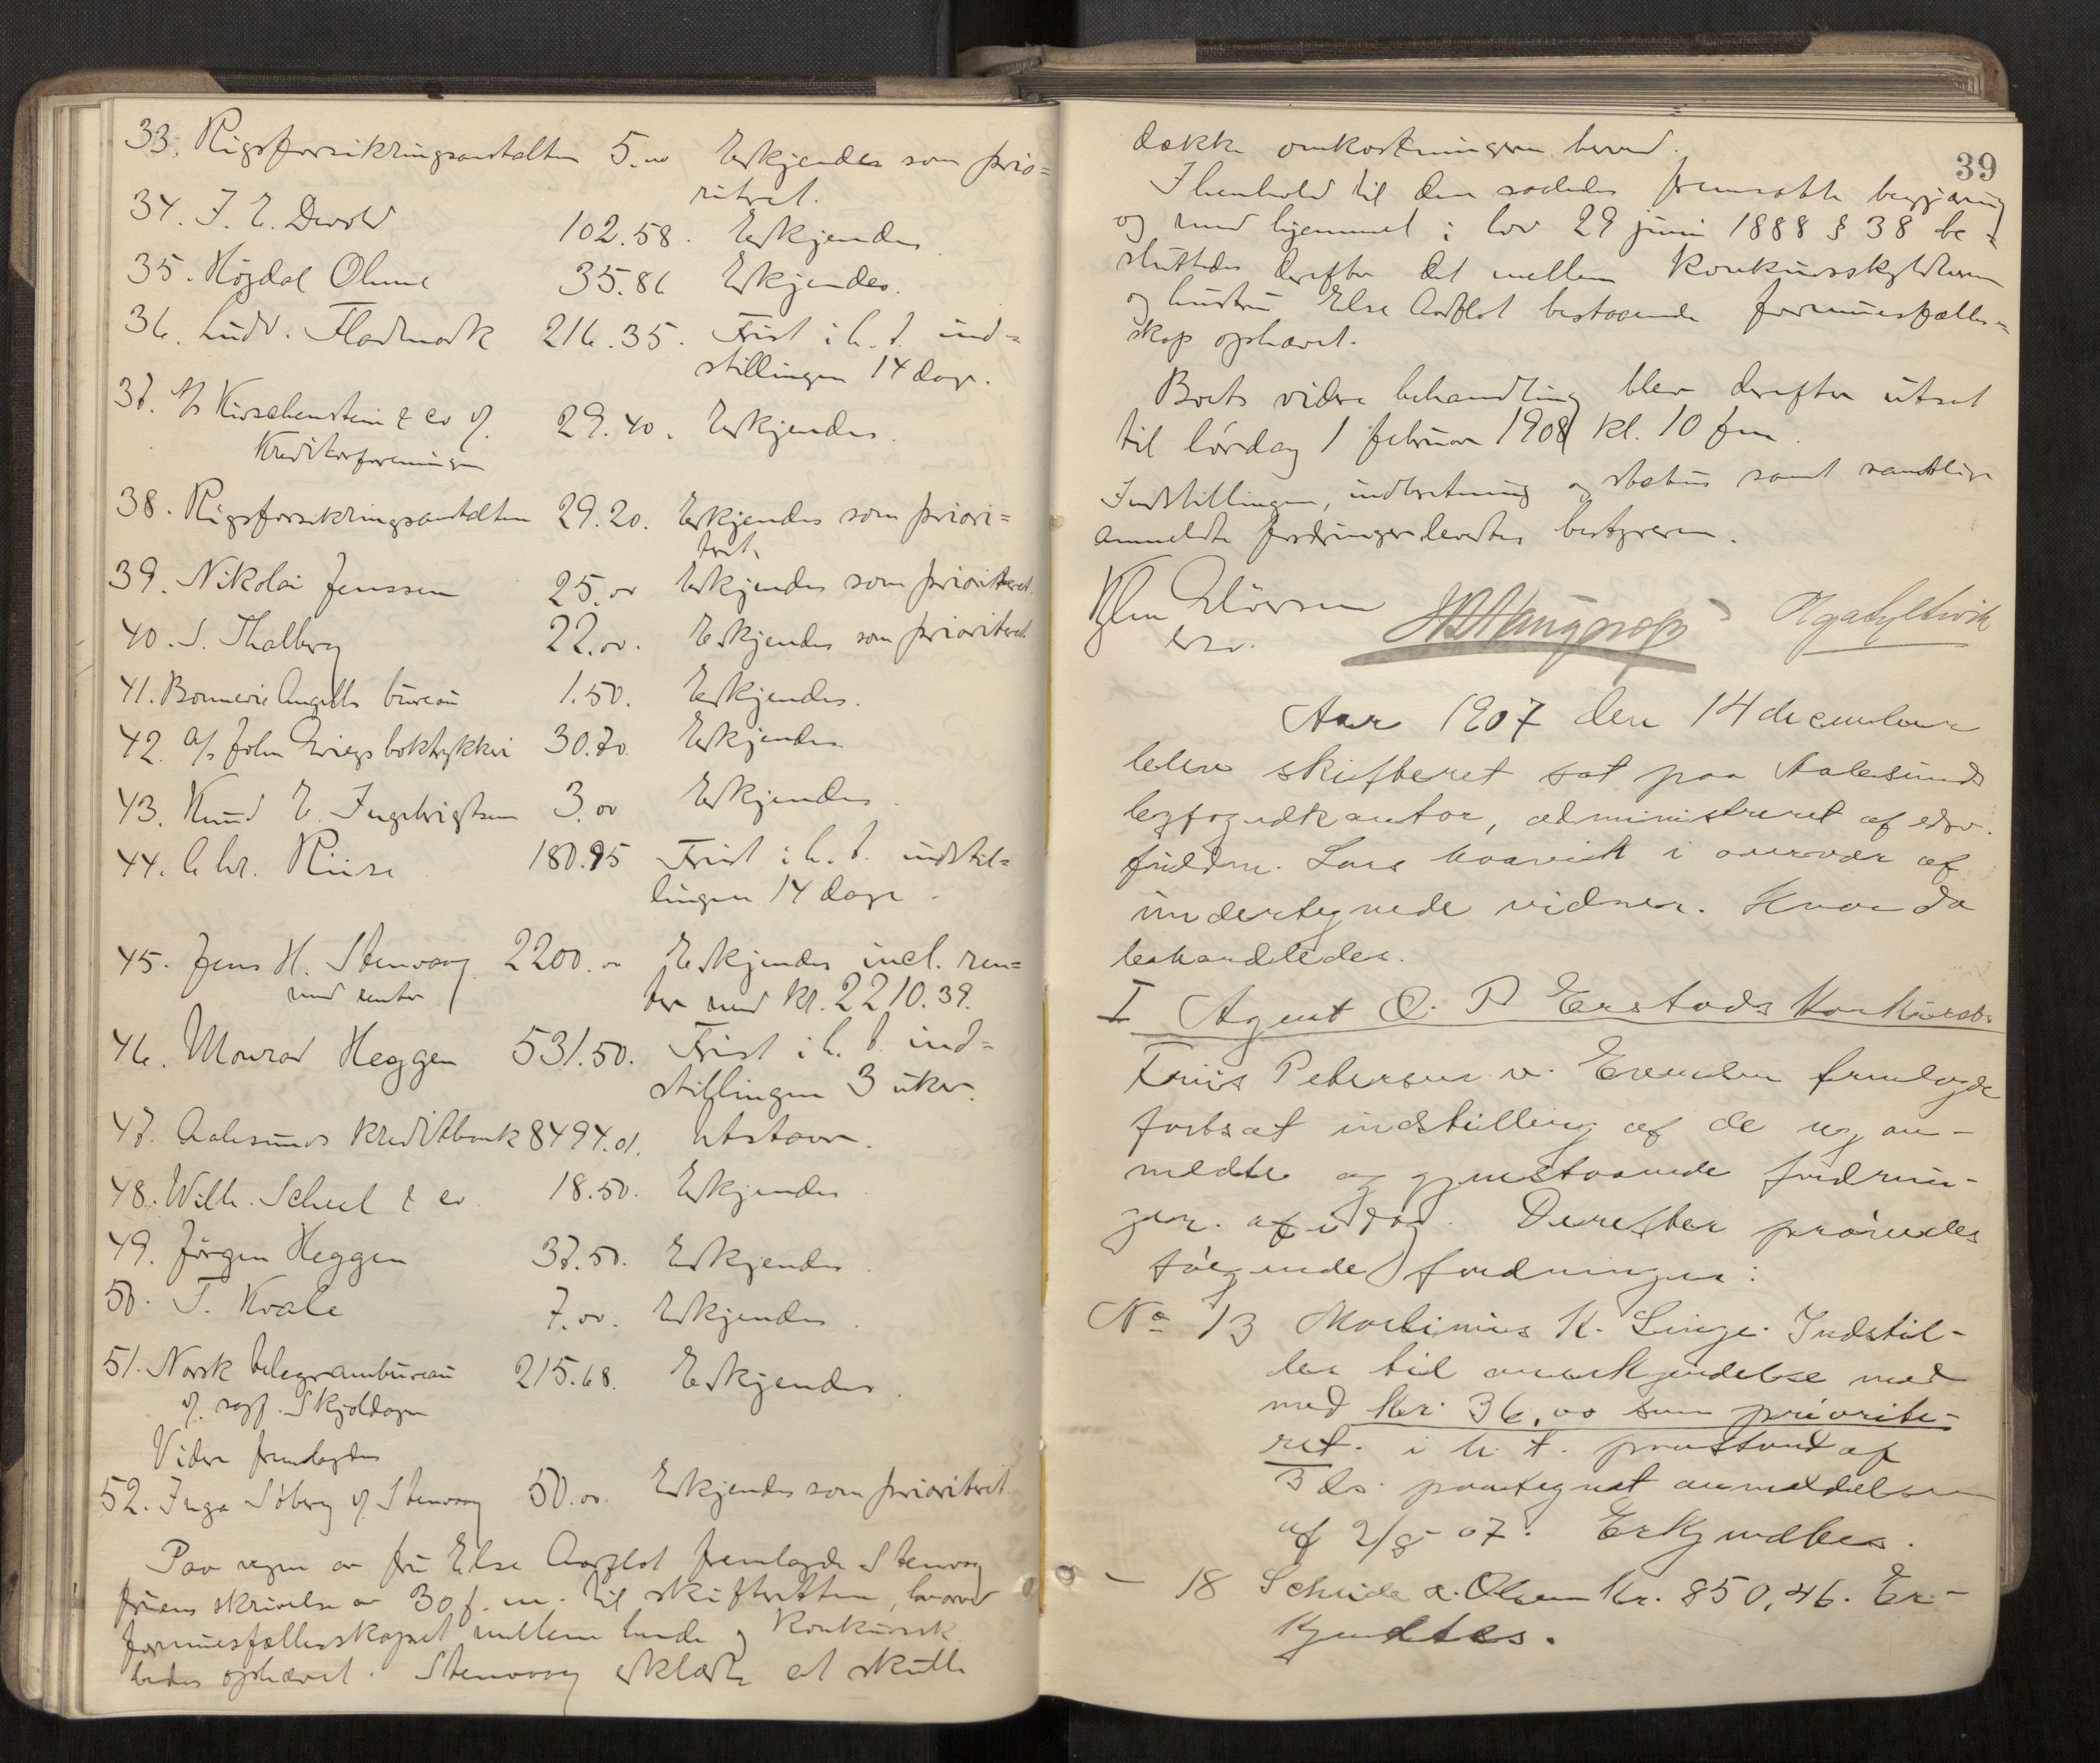 33. Rigsforsikringsanstalten 5.00 Erkjendes som prio=
ritret.
34. I. E. Devold 102.58. Erkjendes
35. Høgdal Olsme 35.86 Erkjendes.
36. Ludv. Fladmark 216.35. Frist i h. t. ind=
stillingen 14 dage.
37. A/s Kirschenstein & co v/ 29.40. Erkjendes.
Kreditorforeningen
38. Rigsforsikringsanstalten 29.20. Erkjendes som priori=
tret.
39. Nikolai Jenssen 25.00 Erkjendes som prioriteret.
40. S. Thalberg 22.00. Erkjendes som prioriteret.
41. bureau 1.50. Erkjendes.
42. A/s John Griegs boktrykkeri 30.70 Erkjendes
43. Knud E. Ingebrigtsen 3.00 Erkjendes.
44. Chr. Riise 180.95 Frist i h. t. indstil=
lingen 14 dage.
45. Jens H. Stenvaag 2200.00 Erkjendes incl. ren=
med renter ter med kr. 2210.39.
46. Monrad Heggen 531.50. Frist i h. t. ind=
stillingen 3 uker.
47. Aalesunds kreditbank 8494.01. Utstaar.
48. Wilh. Scheel & co. 18.50. Erkjendes
49. Jørgen Heggen 37.50. Erkjendes.
50. T. Kvale 7.00. Erkjendes.
51. Norsk telegrambureau 215.68. Erkjendes.
v/ sagf. Skjoldager
Videre fremlagdes
52. Inga Søberg v/ Stenvaag 50.00. Erkjendes som prioriteret.
Paa vegne av fru Else Aarflot fremlagde Stenvaag
fruens skrivelse av 30 f. m. til skifteretten, hvorved
formuesfællesskapet mellem hende og konkursk.
bedes ophævet. Stenvaag erklærte at skulle
39
dække omkostningerne herved.
I henhold til den saaledes fremsatte begjæring
og med hjemmel i lov 29 juni 1888 § 38 be=
sluttedes derefter det mellem konkursskyldneren
og hustru Else Aarflot bestaaende formuesfælles=
skap ophævet.
Boets videre behandling blev derefter utsat
til lørdag 1 februar 1908 kl. 10 fm.
Indstillingen, indberetning og status samt samtlige
anmeldte fordringer leveredes bestyreren.
esv.
Aar 1907 den 14 december
blev skifteret sat paa Aalesunds
byfogedkontor, administreret af edsv.
fuldm. Lars i overvær af
undertegnede vidner. Hvor da
behandledes.
I Agent O. P. Erstads Konkursbo
Friis Petersen v. Evensen fremlagde
fortsat indstilling af de ny an-
meldte og gjenstaaende fordrin-
ger. af idag. Derefter prøvedes
følgende fordringer:
No 13 Martinius K. Linge. Indstil-
les til anerkjendelse med
med kr. 36,00 som priorite-
ret. i h. t. prostand af
3 ds. paategnet anmeldelsen
af 2/8-07. Erkjendtes.
— 18 Scheide & Olsen kr. 850,46. Er-
kjendtes.